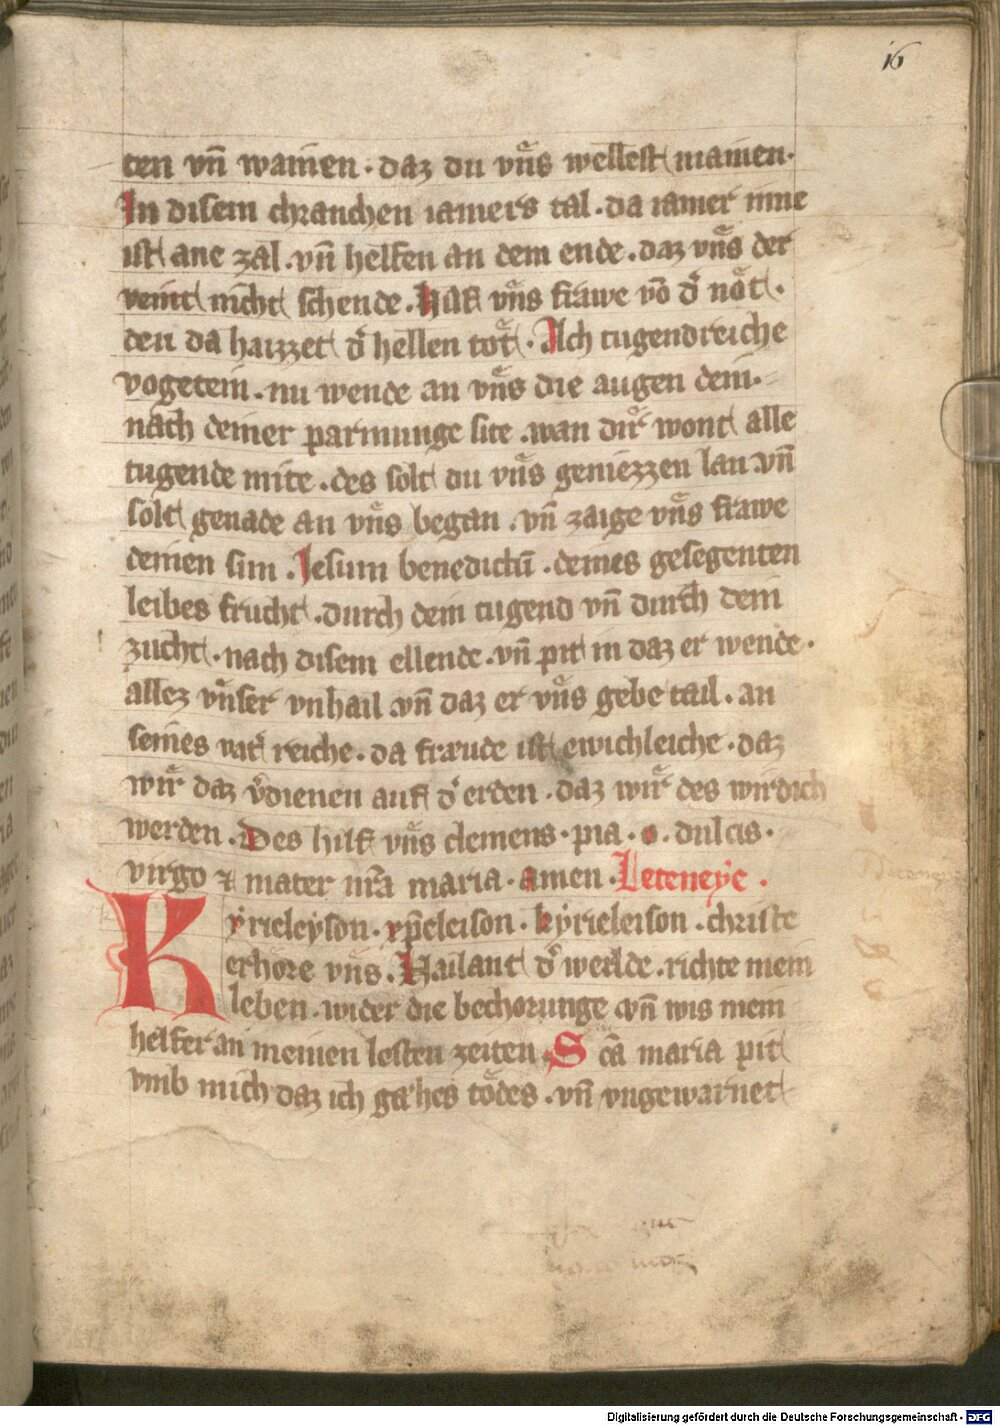 16
ten vn̄ wainen · daz du vns wellest mainen ·
In disem chranchen iamers tal · da iamer inne
ist ane zal · vn̄ helfen an dem ende · daz vns der
veint nicht schende · Hilf vns frawe vō d' nǒt ·
den da haizzet d' hellen tǒt · Ach tugendreiche
vogetein · nu wende an vns die augen dein ·
nach deiner parmunge site · wan dir wont alle
tugende mite · des solt du vns geniezzen lan vn̄
solt genade an vns began · vn̄ zaige vns frawe
deinen sun · Jesum benedictū · deines gesegenten
leibes frucht · durch dein tugend vn̄ durch dein
zucht · nach disem ellende · vn̄ pit in daz er wende ·
allez vnser vnhail vn̄ daz er vns gebe tail · an
seines vat' reiche · da fraude ist ewichleiche · daz
wir daz v'dienen auf d' erden · daz wir des wirdich
werden · Des hilf vns clemens · pia · o · dulcis ·
virgo ⁊ mater nr̄a maria · amen · Leteneye ·
Kyrieleyson · xp̄eleison · kyrieleison · christe
erhore vns · Hailant d' werlde · richte mein
leben · wider die bechorunge vn̄ wis mein
helfer an meinen lesten zeiten · Sc̄a maria pit
vmb mich daz ich gahes todes · vn̄ vngewarnet
Digitalisierung gefördert durch die Deutsche Forschungsgemeinschaft - DFG